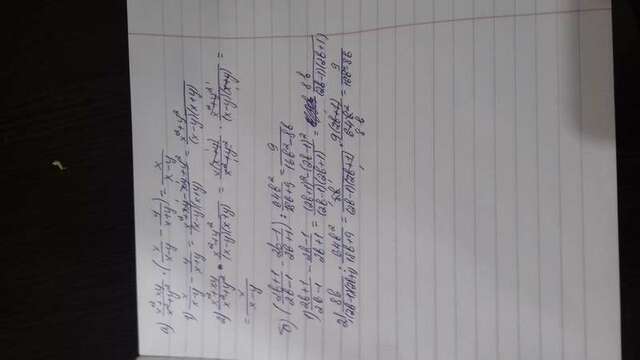 а) (x²+xy)/(x²+y²) · (x/(x-y) - y/(x+y)) = x/(x-y)
1) x/(x-y) - y/(x+y) = (x²+xy-xy+y²)/(x-y)(x+y) = (x²+y²)/((x-y)(x+y))
2) (x²+xy)/(x²+y²) · (x²+y²)/((x-y)(x+y)) = x(x+y)/(x²+y²) · (x²+y²)/((x-y)(x+y)) =
= x/(x-y)
б) ((2b+1)/(2b-1) - (2b-1)/(2b+1)) : 64b²/(18b+9) = 9/(16b²-8b)
1) (2b+1)/(2b-1) - (2b-1)/(2b+1) = ((2b+1)²-(2b-1)²)/((2b-1)(2b+1)) = 8b/((2b-1)(2b+1))
2) 8b/((2b-1)(2b+1)) : 64b²/(18b+9) = 8b/((2b-1)(2b+1)) · 9(2b+1)/64b² = 9/(16b²-8b)
8b